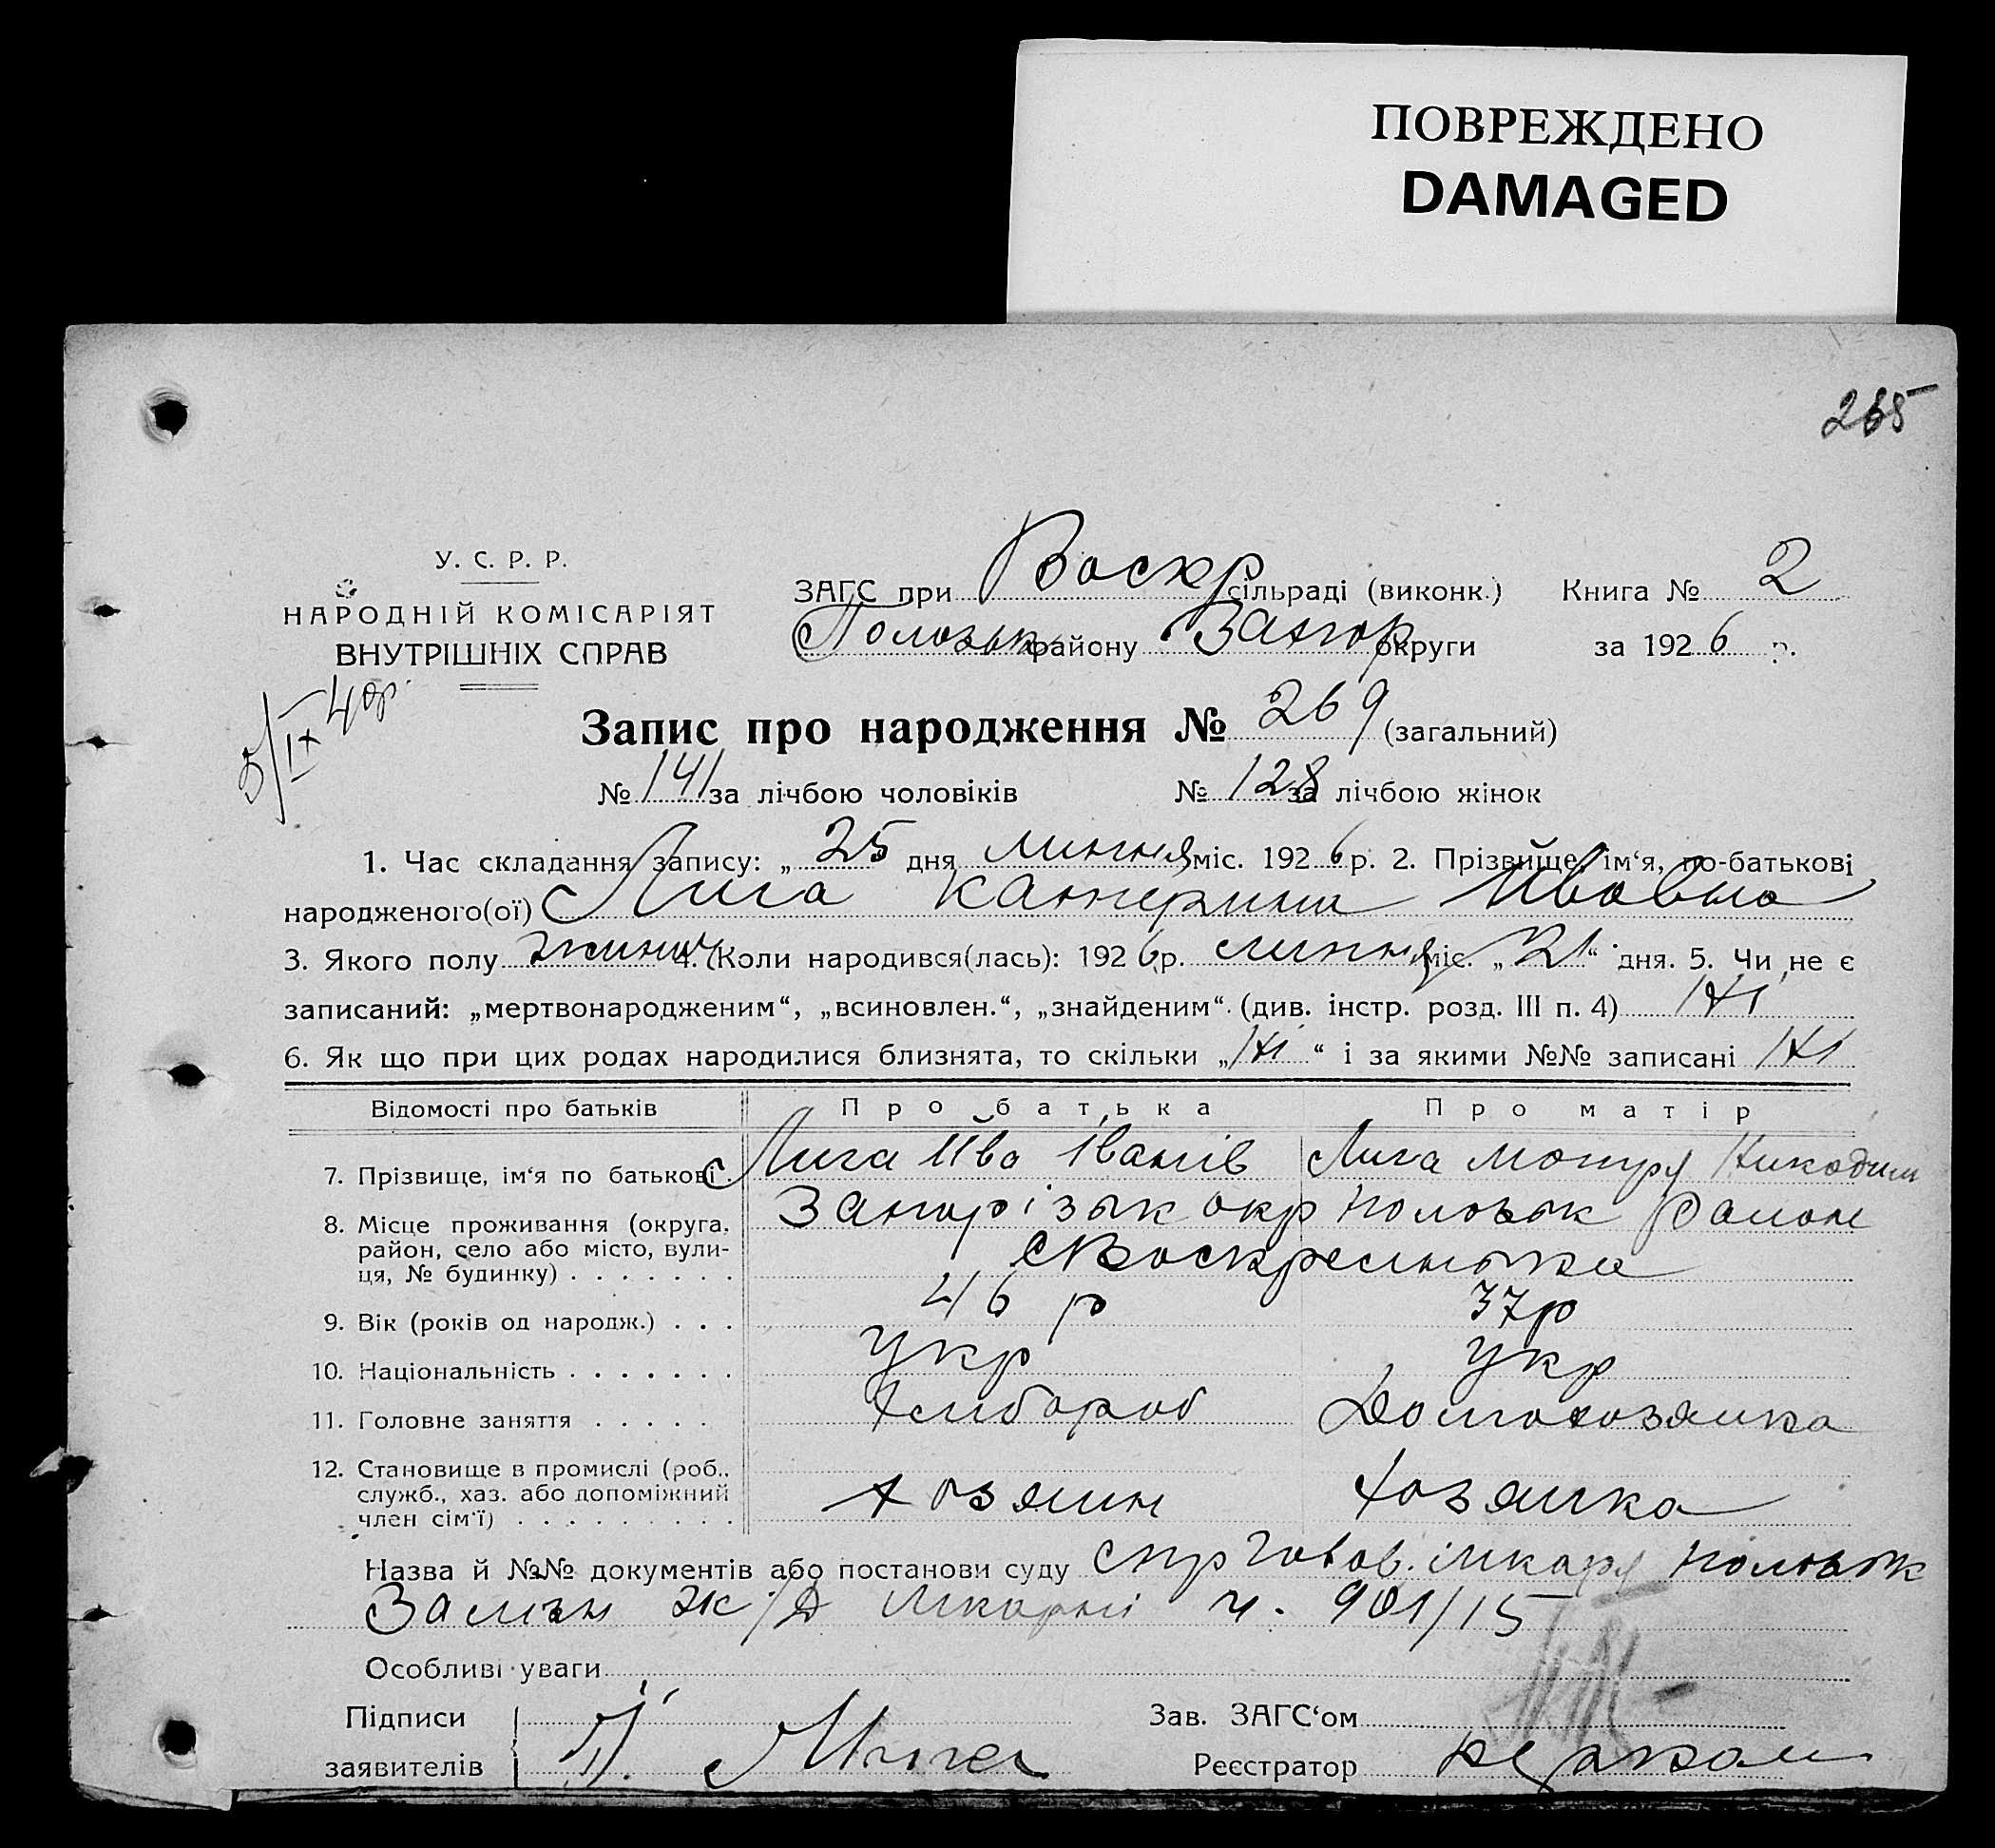 ПОВРЕЖДЕНО
DAMAGED
265
У. С. Р. Р.
НАРОДНІЙ КОМІСАРІЯТ
ВНУТРІШНІХ СПРАВ
ЗАГС при Воскр сільраді (виконк.) Книга № 2
Пологськ району Запор округи за 1926 р.
5/IX 40р.
Запис про народження № 269 (загальний)
№ 141 за лічбою чоловіків № 128 за лічбою жінок
1. Час складання запису: „ 25 дня липня міс. 1926 р. 2. Прізвище, ім‘я, по-батькові
народженого(ої) Лига Катерина Ивовна
3. Якого полу жиноч 4. Коли народився(лась): 1926 р. липня міс. „ 21 “ дня. 5. Чи не є
записаний: „мертвонародженим“, „всиновлен.“, „знайденим“. (див. інстр. розд. III п. 4) Ні
6. Як що при цих родах народилися близнята, то скільки „ Ні “ і за якими №№ записані Ні
Відомості про батьків Про батька Про матір
7. Прізвище, ім‘я по батькові. Лига Ива Іванів Лига Мотря Никодим
8. Місце проживання (округа, район, село або місто, вули-ця, № будинку) . . . . . . . Запорізьк окр Пологськ Район
с Воскресинька
9. Вік (років од народж.) . . . 46 р 37р
10. Національність . . . . . . . укр укр
11. Головне заняття . . . . . Хлибороб Домохозяика
12. Становище в промислі (роб.,
служб., хаз. або допоміжний
член сім‘ї) . . . . . . . . . хозяин хозяика
Назва й №№ документів або постанови суду
ж/д ч. 901/15
Особливі уваги
Підписи Зав. ЗАГС‘ом
заявителів Реєстратор